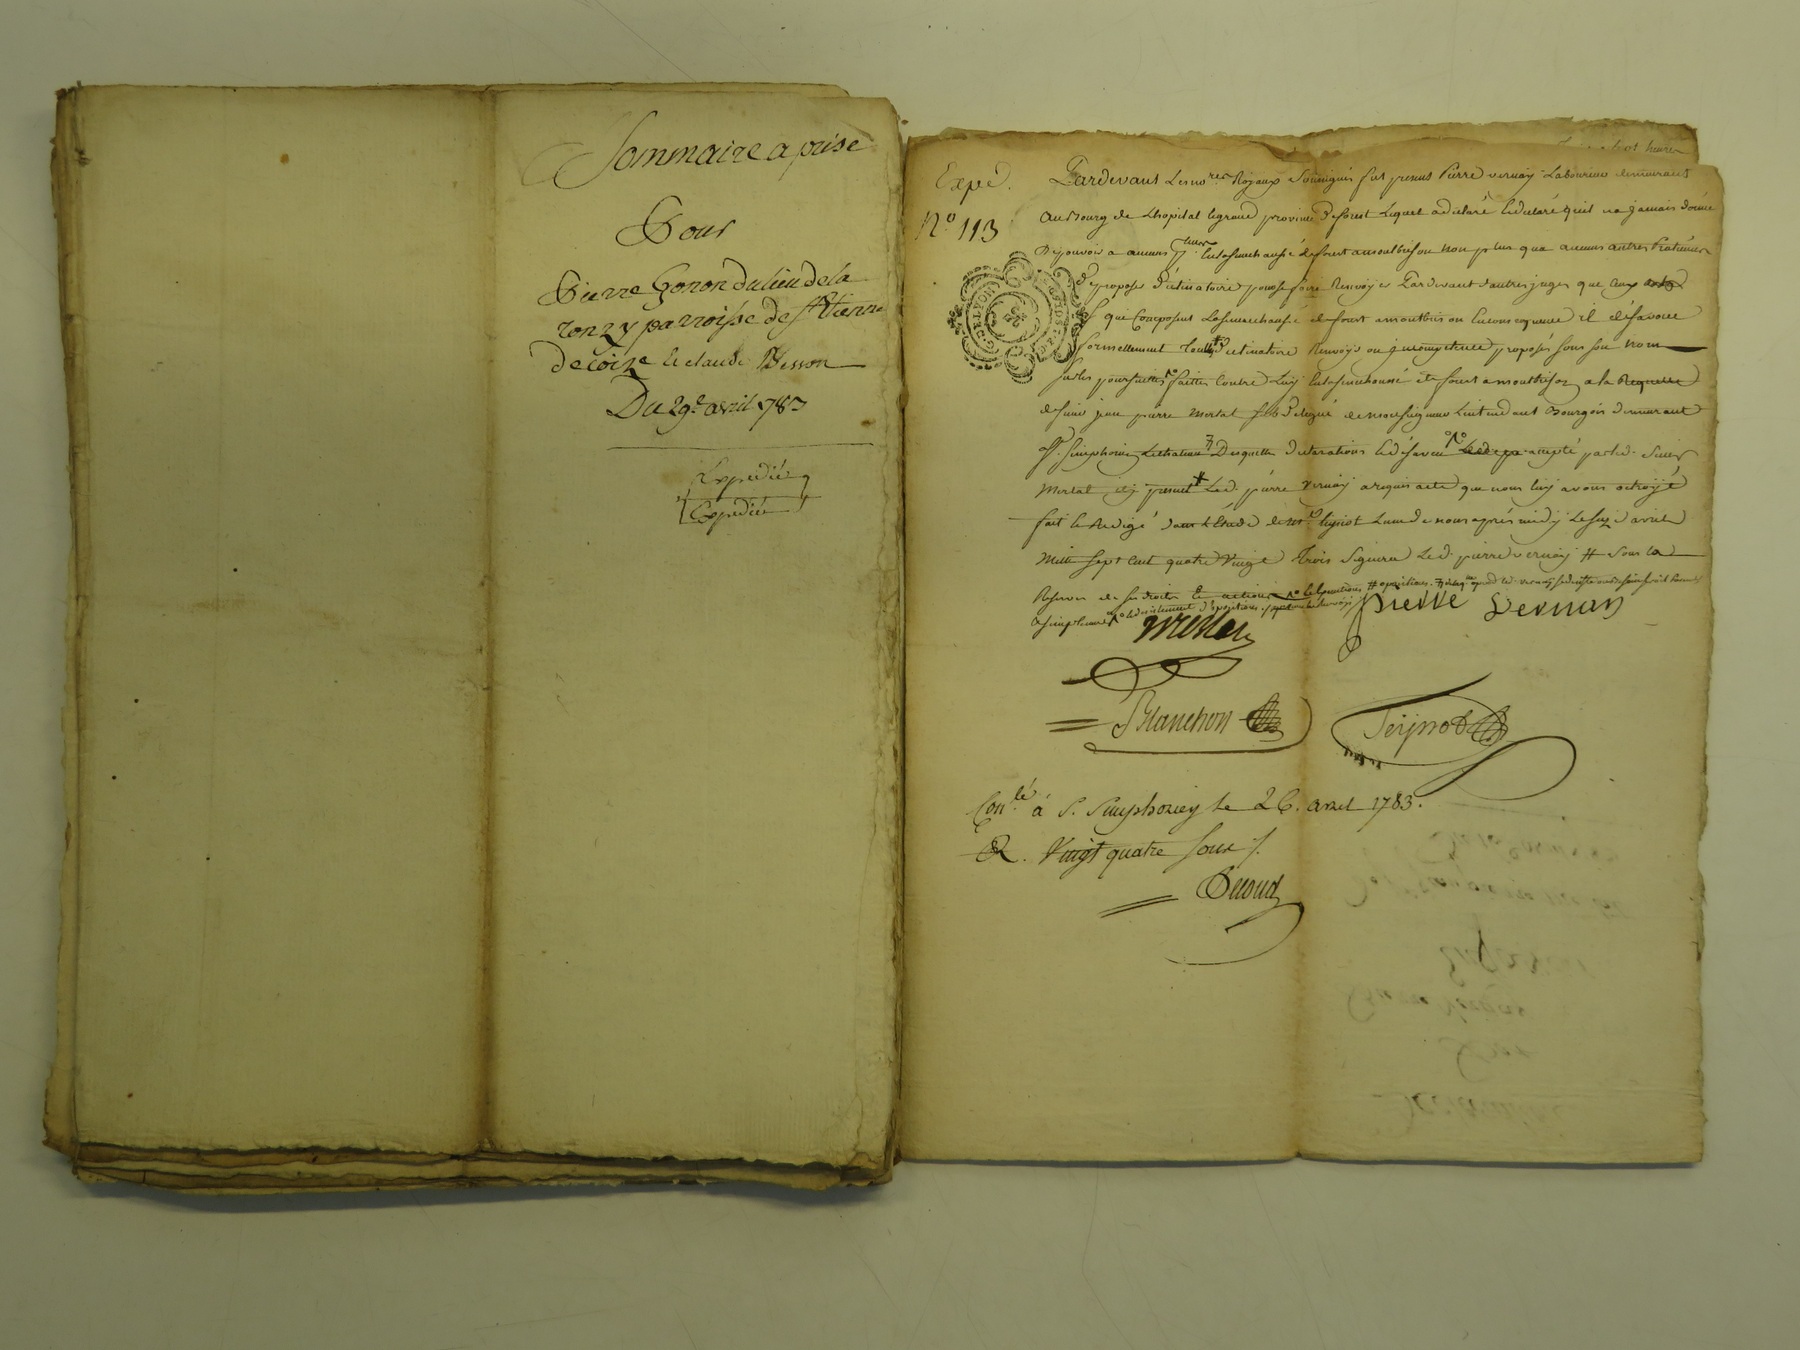 Sommaire a prise
Pour
Pierre Gonon du lieu de la
ronzy parroisse de st Etienne
de coize et claude Besson
Du 29e avril 1783
Expediée
Expediée
Exped.
N.º 113
Pardevant Les nores Royaux Soussignés fut present Pierre vernay Laboureur demeurant
au Bourg de Lhopital legrand province de forest Lequel a declaré et declare quil na jamais donné
De pouvoir a aucuns en la senechaussée de forest a montbrison non plus qua aucuns autres Praticiens
de proposer declinatoire pour se faire Renvoyer Pardevant dautres juges que ceux
que Composent La senechaussée de forest a montbrison en consequence il désavoue
formellement tout declinatoire Renvoy ou incompetence proposés sous son nom
sur les poursuittes faittes contre Luy en la senechaussée de forest a montbrison a la Requette
de sieur jean pierre mertal subdelegué de monseigneur Lintendant Bourgois demeurant
a St. Simphorien Desquelles declarations et désaveu accepté par led. sieur
mertal icy present Led. pierre vernay a requis acte que nous luy avons octroyé
fait et Redigé dans L'étude de me. Lun de nous après midy Le avril
mille sept cent quatre Vingt trois signera Led. pierre vernay # sous la
Reserve de ses droits et actions
pierre vernay
mertal
Blanchon
Con.lé à S. Simphorien le 26. avril 1783.
R. Vingt quatre sous /.